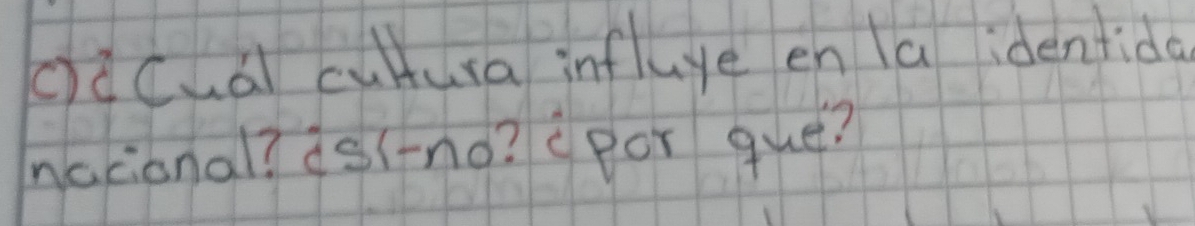 c) ¿Cuál cultura influye en la identida
nacional? ¿si-no? ¿por qué?